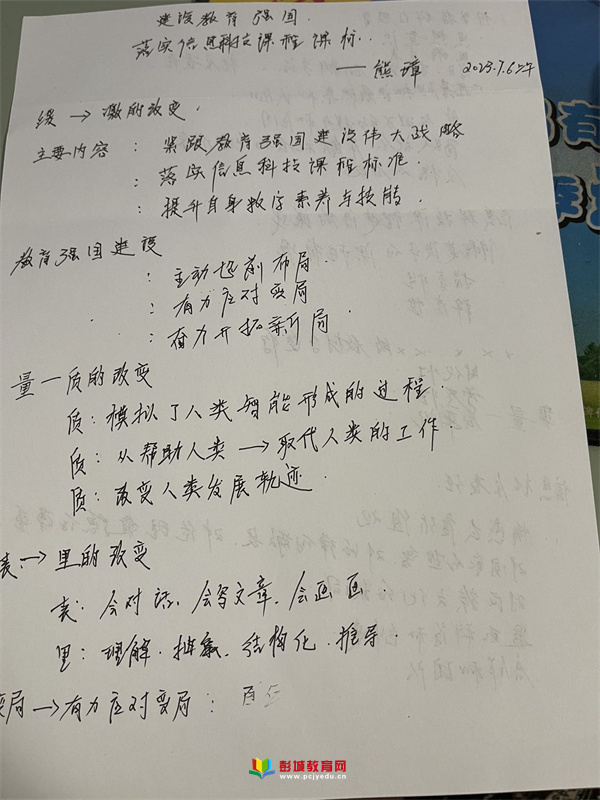 建设教育强国.
落实信息科技课程课标..
——熊璋 2023.7.6上午
缓→激的改变.
主要内容: 紧跟教育强国建设伟大战略
: 落实信息科技课程标准.
: 提升自身数字素养与技能.
教育强国建设
: 主动超前布局.
: 有力应对变局.
: 奋力开拓新局.
量—质的改变
质: 模拟了人类智能形成的过程.
质: 从帮助人类→取代人类的工作
质: 改变人类发展轨迹.
表→里的改变
表: 会对话, 会写文章, 会画画.
里: 理解. 抽象, 结构化, 推导.
变局→有力应对变局:
彭城教育网
www.pcjyedu.cn